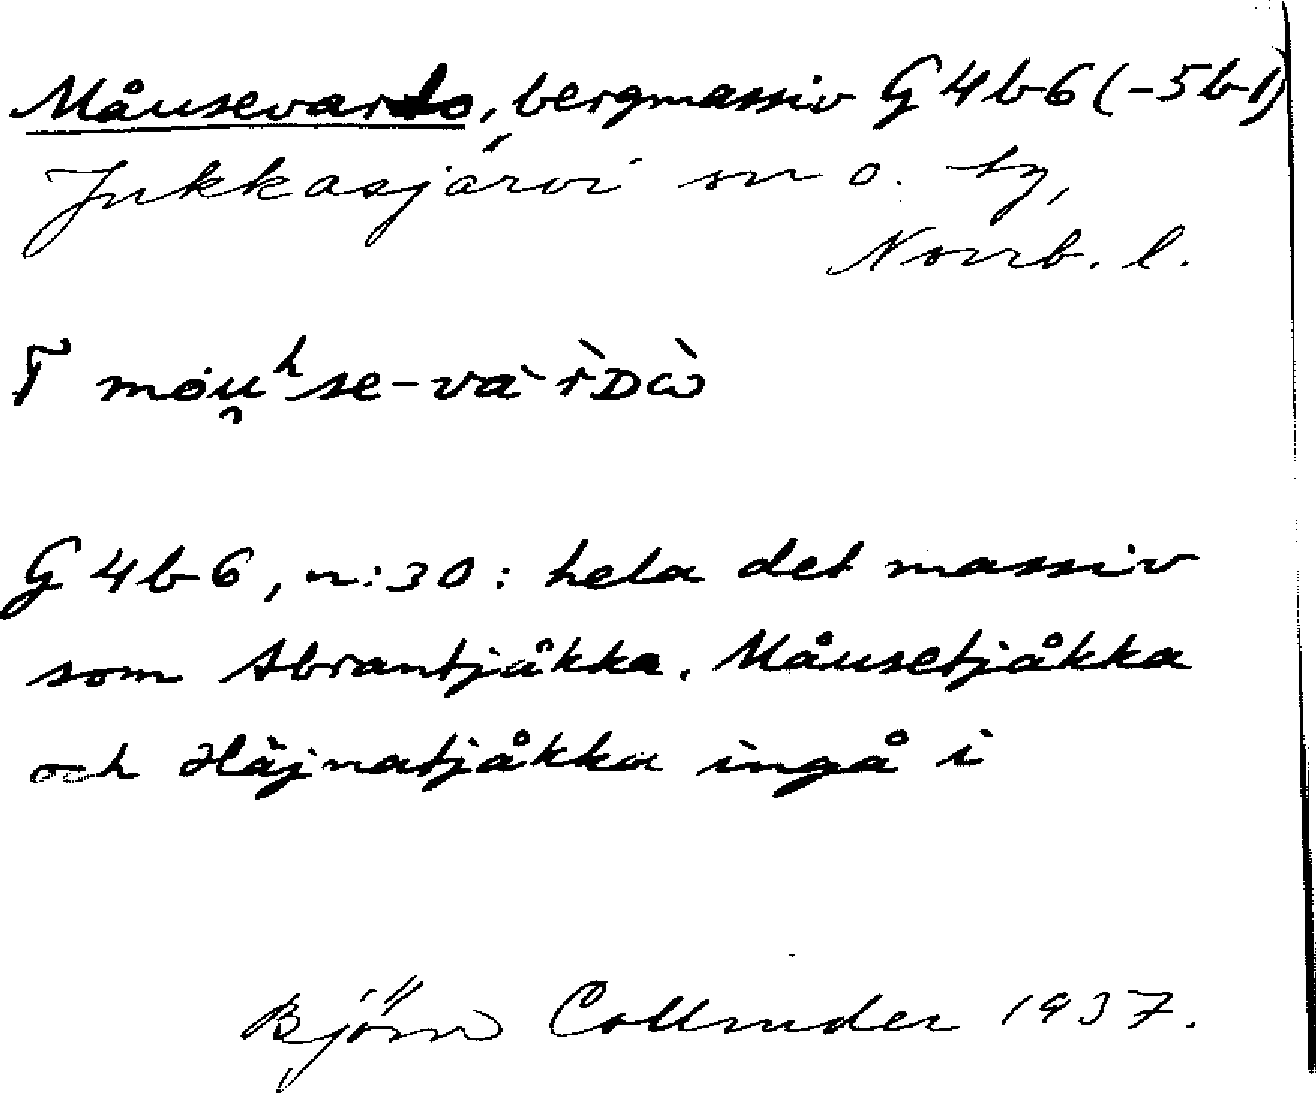 Måusevardo, bergmassiv G 4 b 6 (-5 b 1)
Jukkasjärvi sn o. ty,
Norrb. l.
G 4 b 6, n:30: hela det massiv
som Abrantjåkka. Måusetjåkka
och Håjnatjåkka ingå i
Björn Collinder 1937.